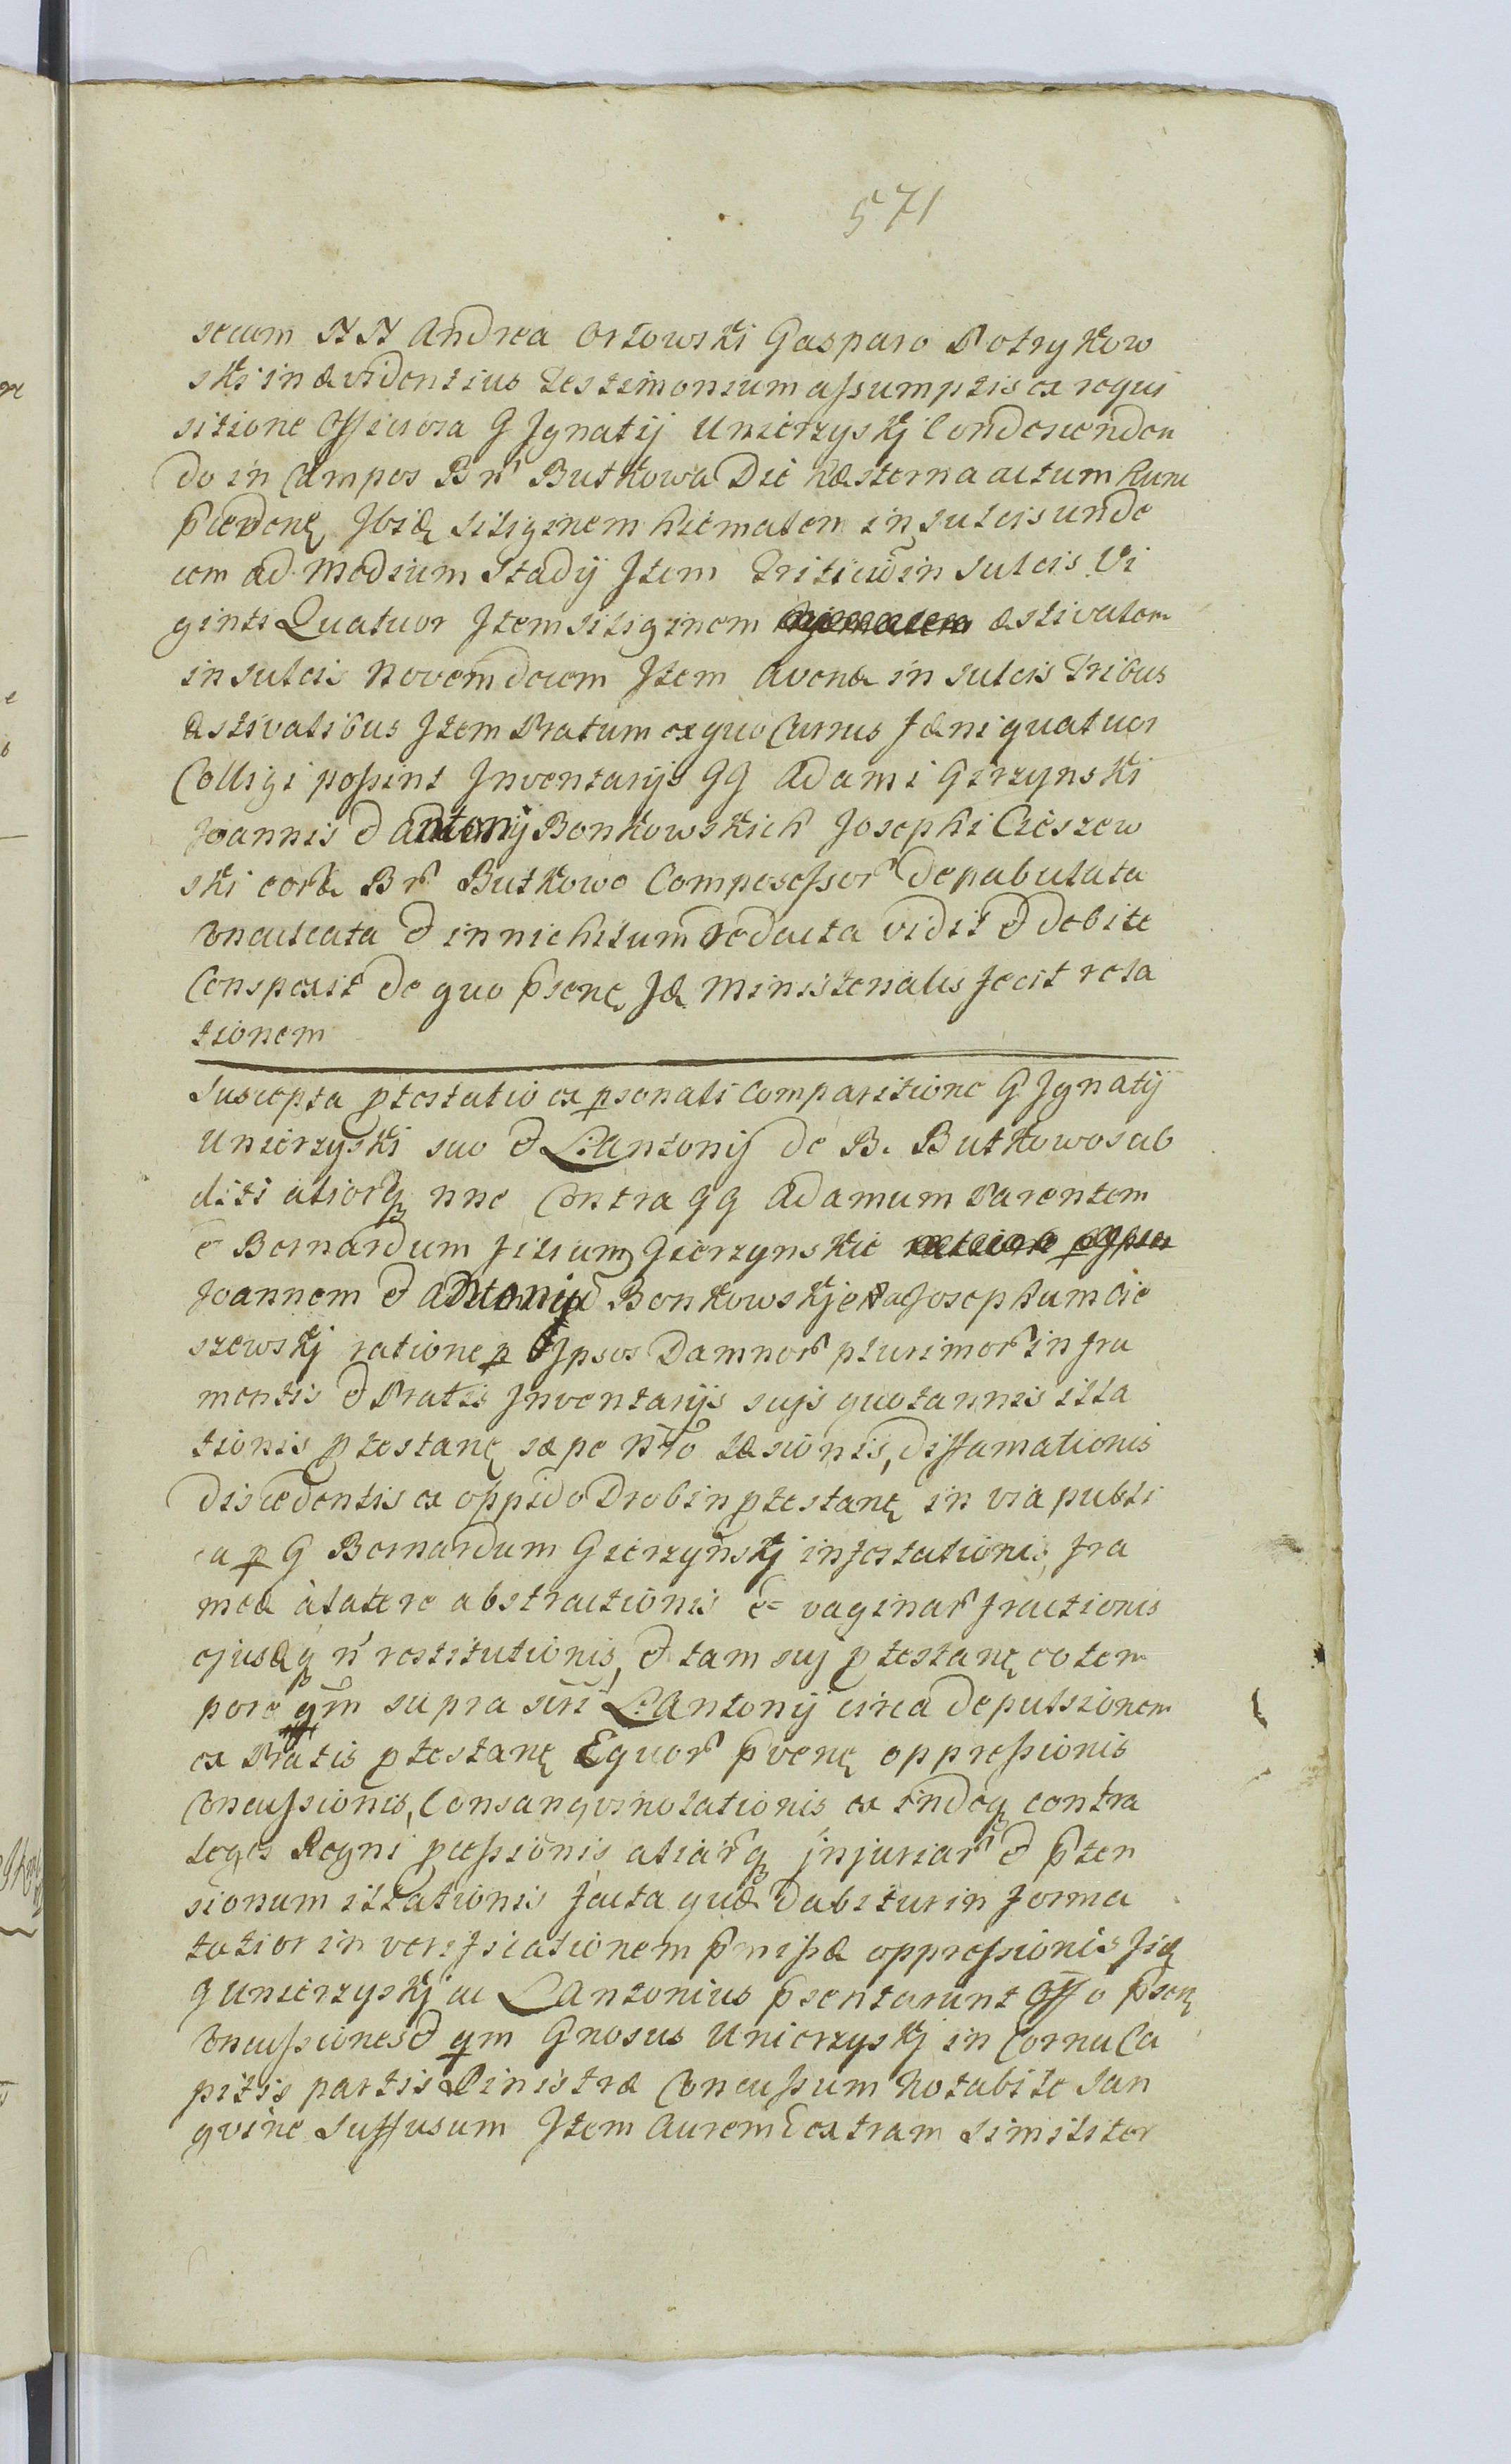 571
secum NN Andrea Orłowski Gasparo Potrykow
ski in evidentius testimonium assumptis ex requi
sitione Officiosa G Ignatij Unierzyskj Condescenden
do in Campos B nr Butkowa Die hæsterna actum hunc
pcedenę Ibiq siliginem hiematem in sulcis unde
cem ad Medium Stadij Item Triticum in sulcis Vi
ginti Quatuor Item siliginem æstivalem
in sulcis Novemdecem Item avena in sulcis Tribus
æstivalibus Item Pratum ex quo Currus fæni quatuor
Colligi possint Inventarijs GG Adami Girzynski
Joannis & Antonij Bonkowskich Josephi Cieszew
ski eorū Br Butkowo Compossessor depabulata
Conculcata & in nichilum redacta vidit & debite
Conspexit de quo psenę Iđ Ministerialis fecit rela
tionem
Suscepta ptestatio ex psonali Comparitione G Ignatij
Unierzyski suo & L. Antonij de B. Butkowo sub
diti aliorq nne Contra GG Adamum Parentem
& Bernardum filium Gierzynskie
Joannem & Antoniū Bonkowskje & Josephum Cie
szewskj ratione p Ipsos Damnor plurimor in fru
mentis & Pratis Inventarijs sujs quotannis illa
tionis ptestanę sæpe læsionis, diffamationis
discedentis ex oppido Drobin ptestanę in via publi
ca p G Bernardum Gierzynskj infestationis fra
meæ à latere abstractionis & vaginar fractionis
ejusđq n restitutionis, & tam suj ptestanę eo tem
pore qm supra scri L. Antonij circa depulsionem
ex Pratis ptestanę Equor pvenę oppressionis
Concussionis, Consangvinolationis ex indeq contra
leges Regni pcessionis aliarq injuriar & pten
sionum illationis facta quæ dabitur in forma
latior in verificationem pmissæ oppressionis Iiđ
G Unierzyskj ac L Antonius psentarunt Offo psenę
Concussiones & qm Gnosus Unierzyskj in Cornu Ca
pitis partis Sinistræ Concussum Notabile San
gvine Suffusum Item Aurem dextram similiter